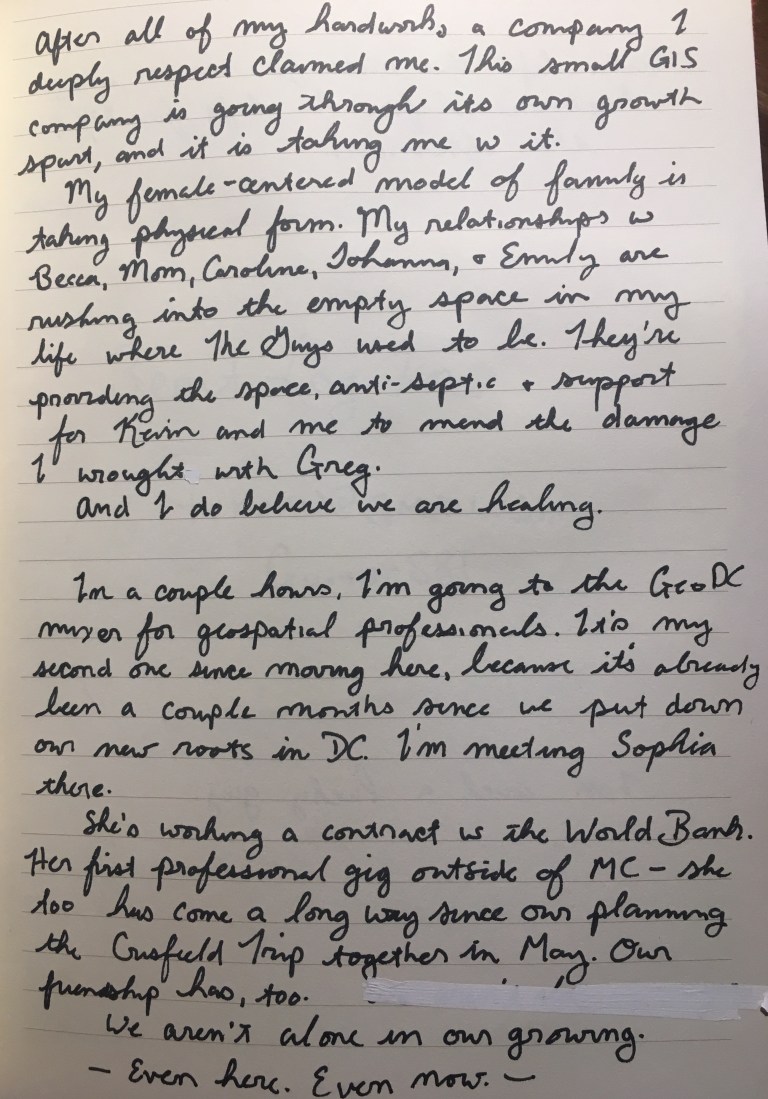 After all of my hardwork, a company I
deeply respect claimed me. This small GIS
company is going through its own growth
spurt, and it is taking me w it.
My female-centered model of family is
taking physical form. My relationships w
Becca, Mom, Caroline, Johanna, & Emily are
rushing into the empty space in my
life where The Guys used to be. They're
providing the space, anti-septic & support
for Kevin and me to mend the damage
I wrought with Greg.
And I do believe we are healing.
In a couple hours, I'm going to the GeoDC
mixer for geospatial professionals. It's my
second one since moving here, because it's already
been a couple months since we put down
our new roots in DC. I'm meeting Sophia
there.
She's working a contract w the World Bank.
Her first professional gig outside of MC - she
too has come a long way since our planning
the Trip together in May. Our
friendship has, too.
We aren't alone in our growing.
- Even here. Even now. -